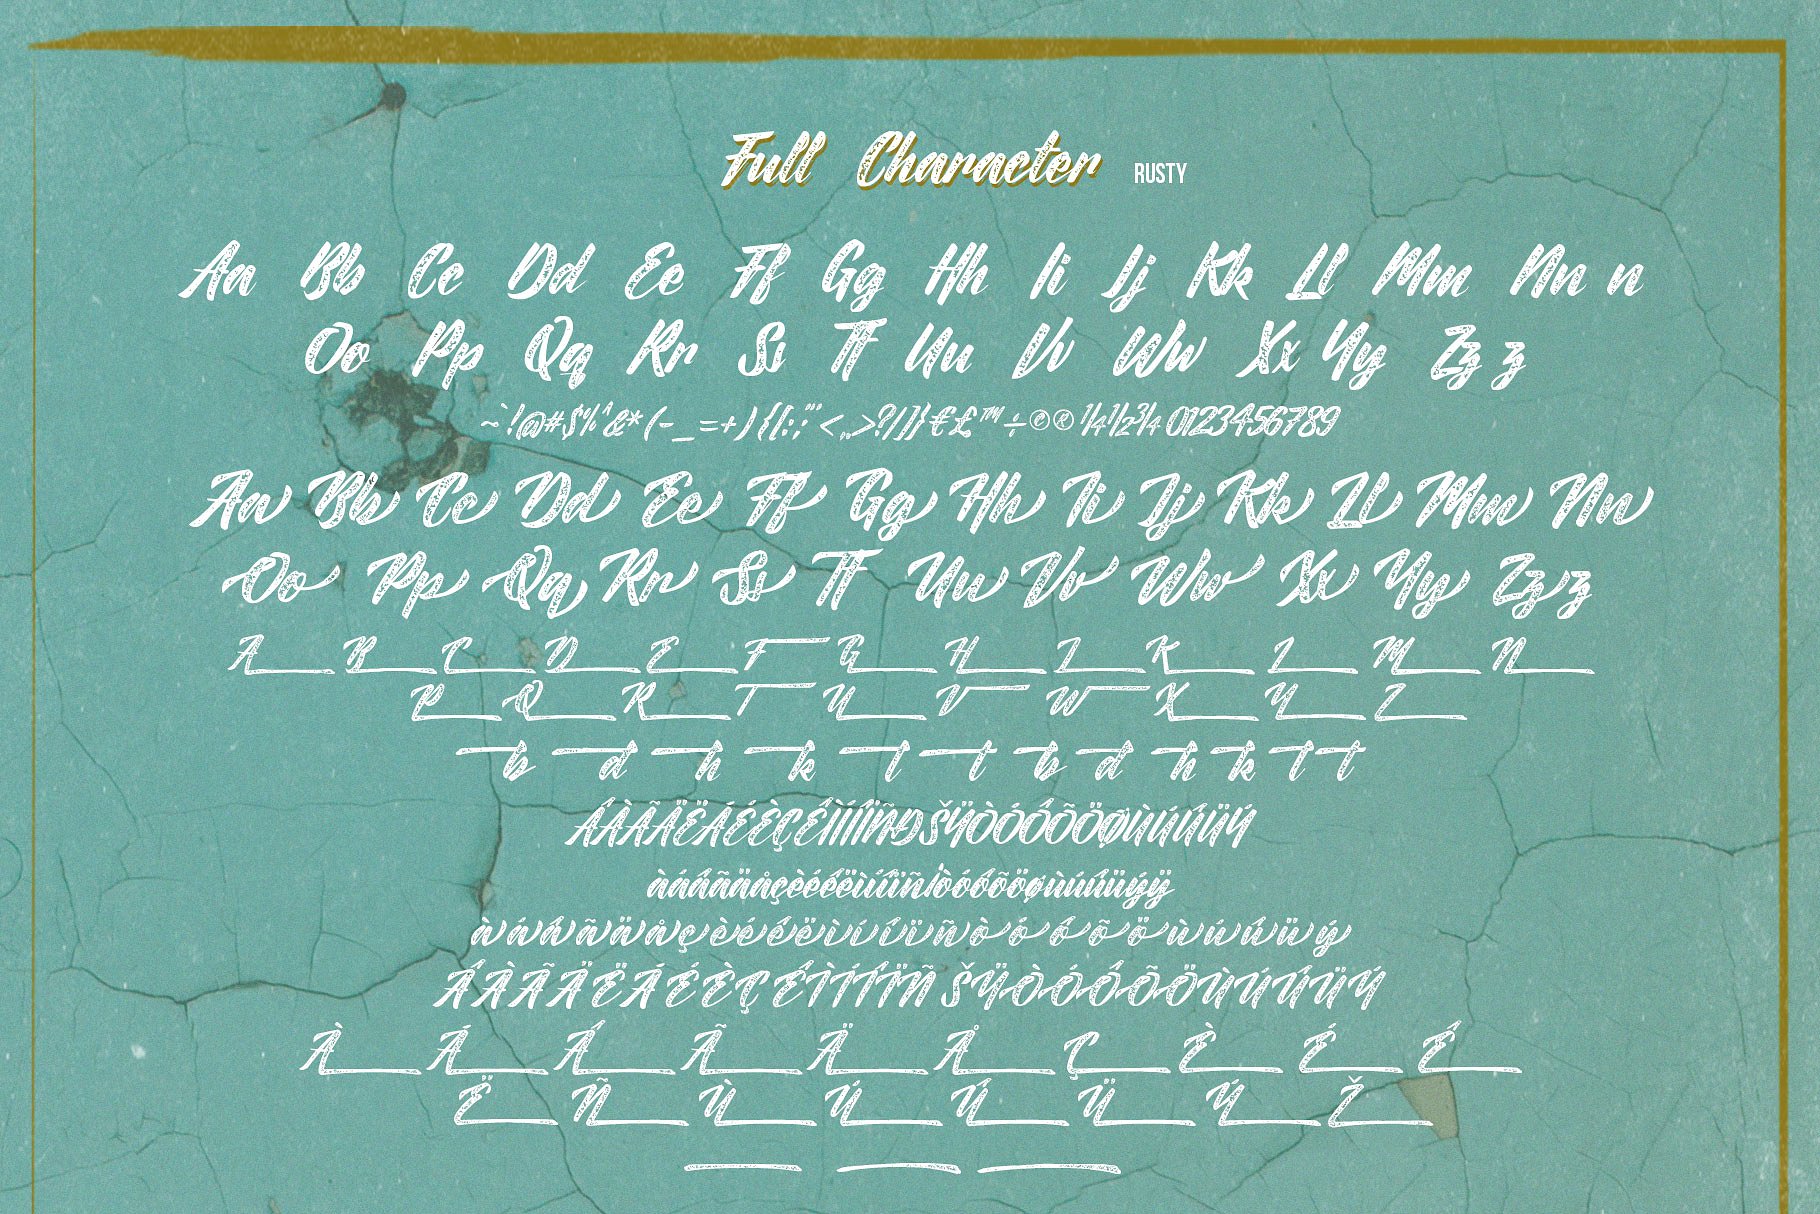 Full Character RUSTY
Aa Bb Cc Dd Ee Ff Gg Hh Ii Jj Kk Ll Mm Nn n
Oo Pp Qq Rr Ss Tt Uu Vv Ww Xx Yy Zz z
~`!@#$%^&*(-_=+){[:;"'<,.>?/]}€£™÷©®¼½¾0123456789
Aa Bb Cc Dd Ee Ff Gg Hh Ii Jj Kk Ll Mm Nn
Oo Pp Qq Rr Ss Tt Uu Vv Ww Xx Yy Zz z
A B C D E F G H I K L M N
P Q R T U V W X Y Z
b d h k l t b d h k l t
àáâãäåçèéêëìíîïñòóôõöøùúûüýÿ
àáâãäåçèéêëìíîïñòóôõöùúûüý
À Á Â Ã Ä Å Ç È É Ê
Ë Ñ Ù Ú Û Ü Ý Ž